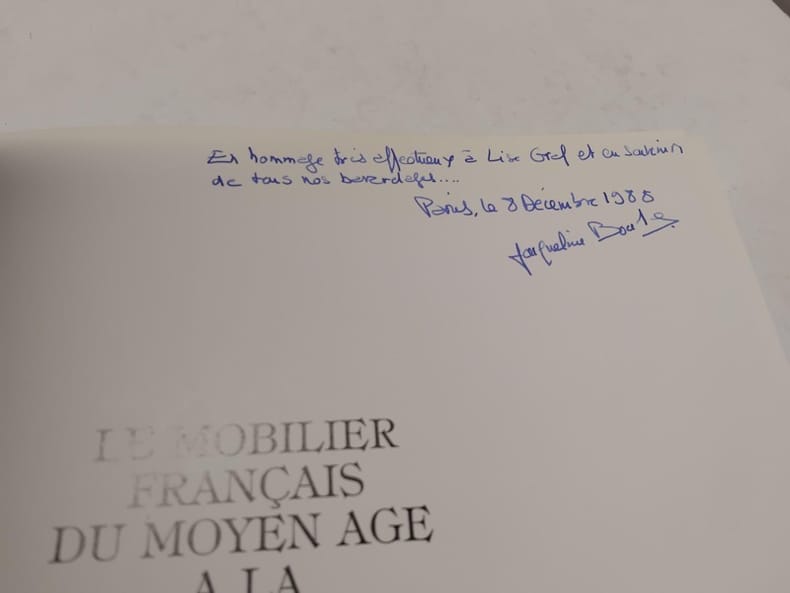 En hommage très affectueux à Lise Graf et en souvenir
de tous nos bavardages....
Paris, le 8 Décembre 1988
Jacqueline
LE MOBILIER
FRANÇAIS
DU MOYEN AGE
A LA